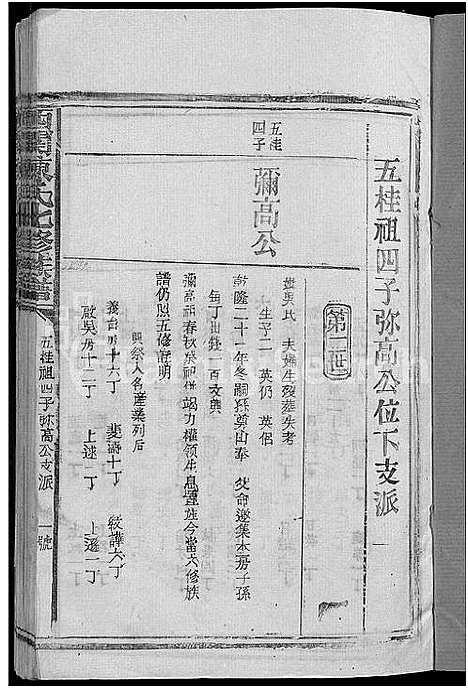 五桂祖四子弥高公位下支派
一
第二世
五桂
四子
彌高公
娶吳氏 夫婦生歿葬失考
生子二 英仍 英侶
乾隆二十一年冬嗣孫尊山奉 父命邀集本房子孫
每丁出錢一百文興
彌高祖春秋祭祀併竭力權領生息置姓今當六修族
譜仍照五修註明
興祭人名産業列后
養吉房十六丁 斐譸十丁 紋譁六丁
啟吳房十二丁 上述一丁 上遜一丁
陳氏七修族譜
五桂祖四子弥高公支派
一號